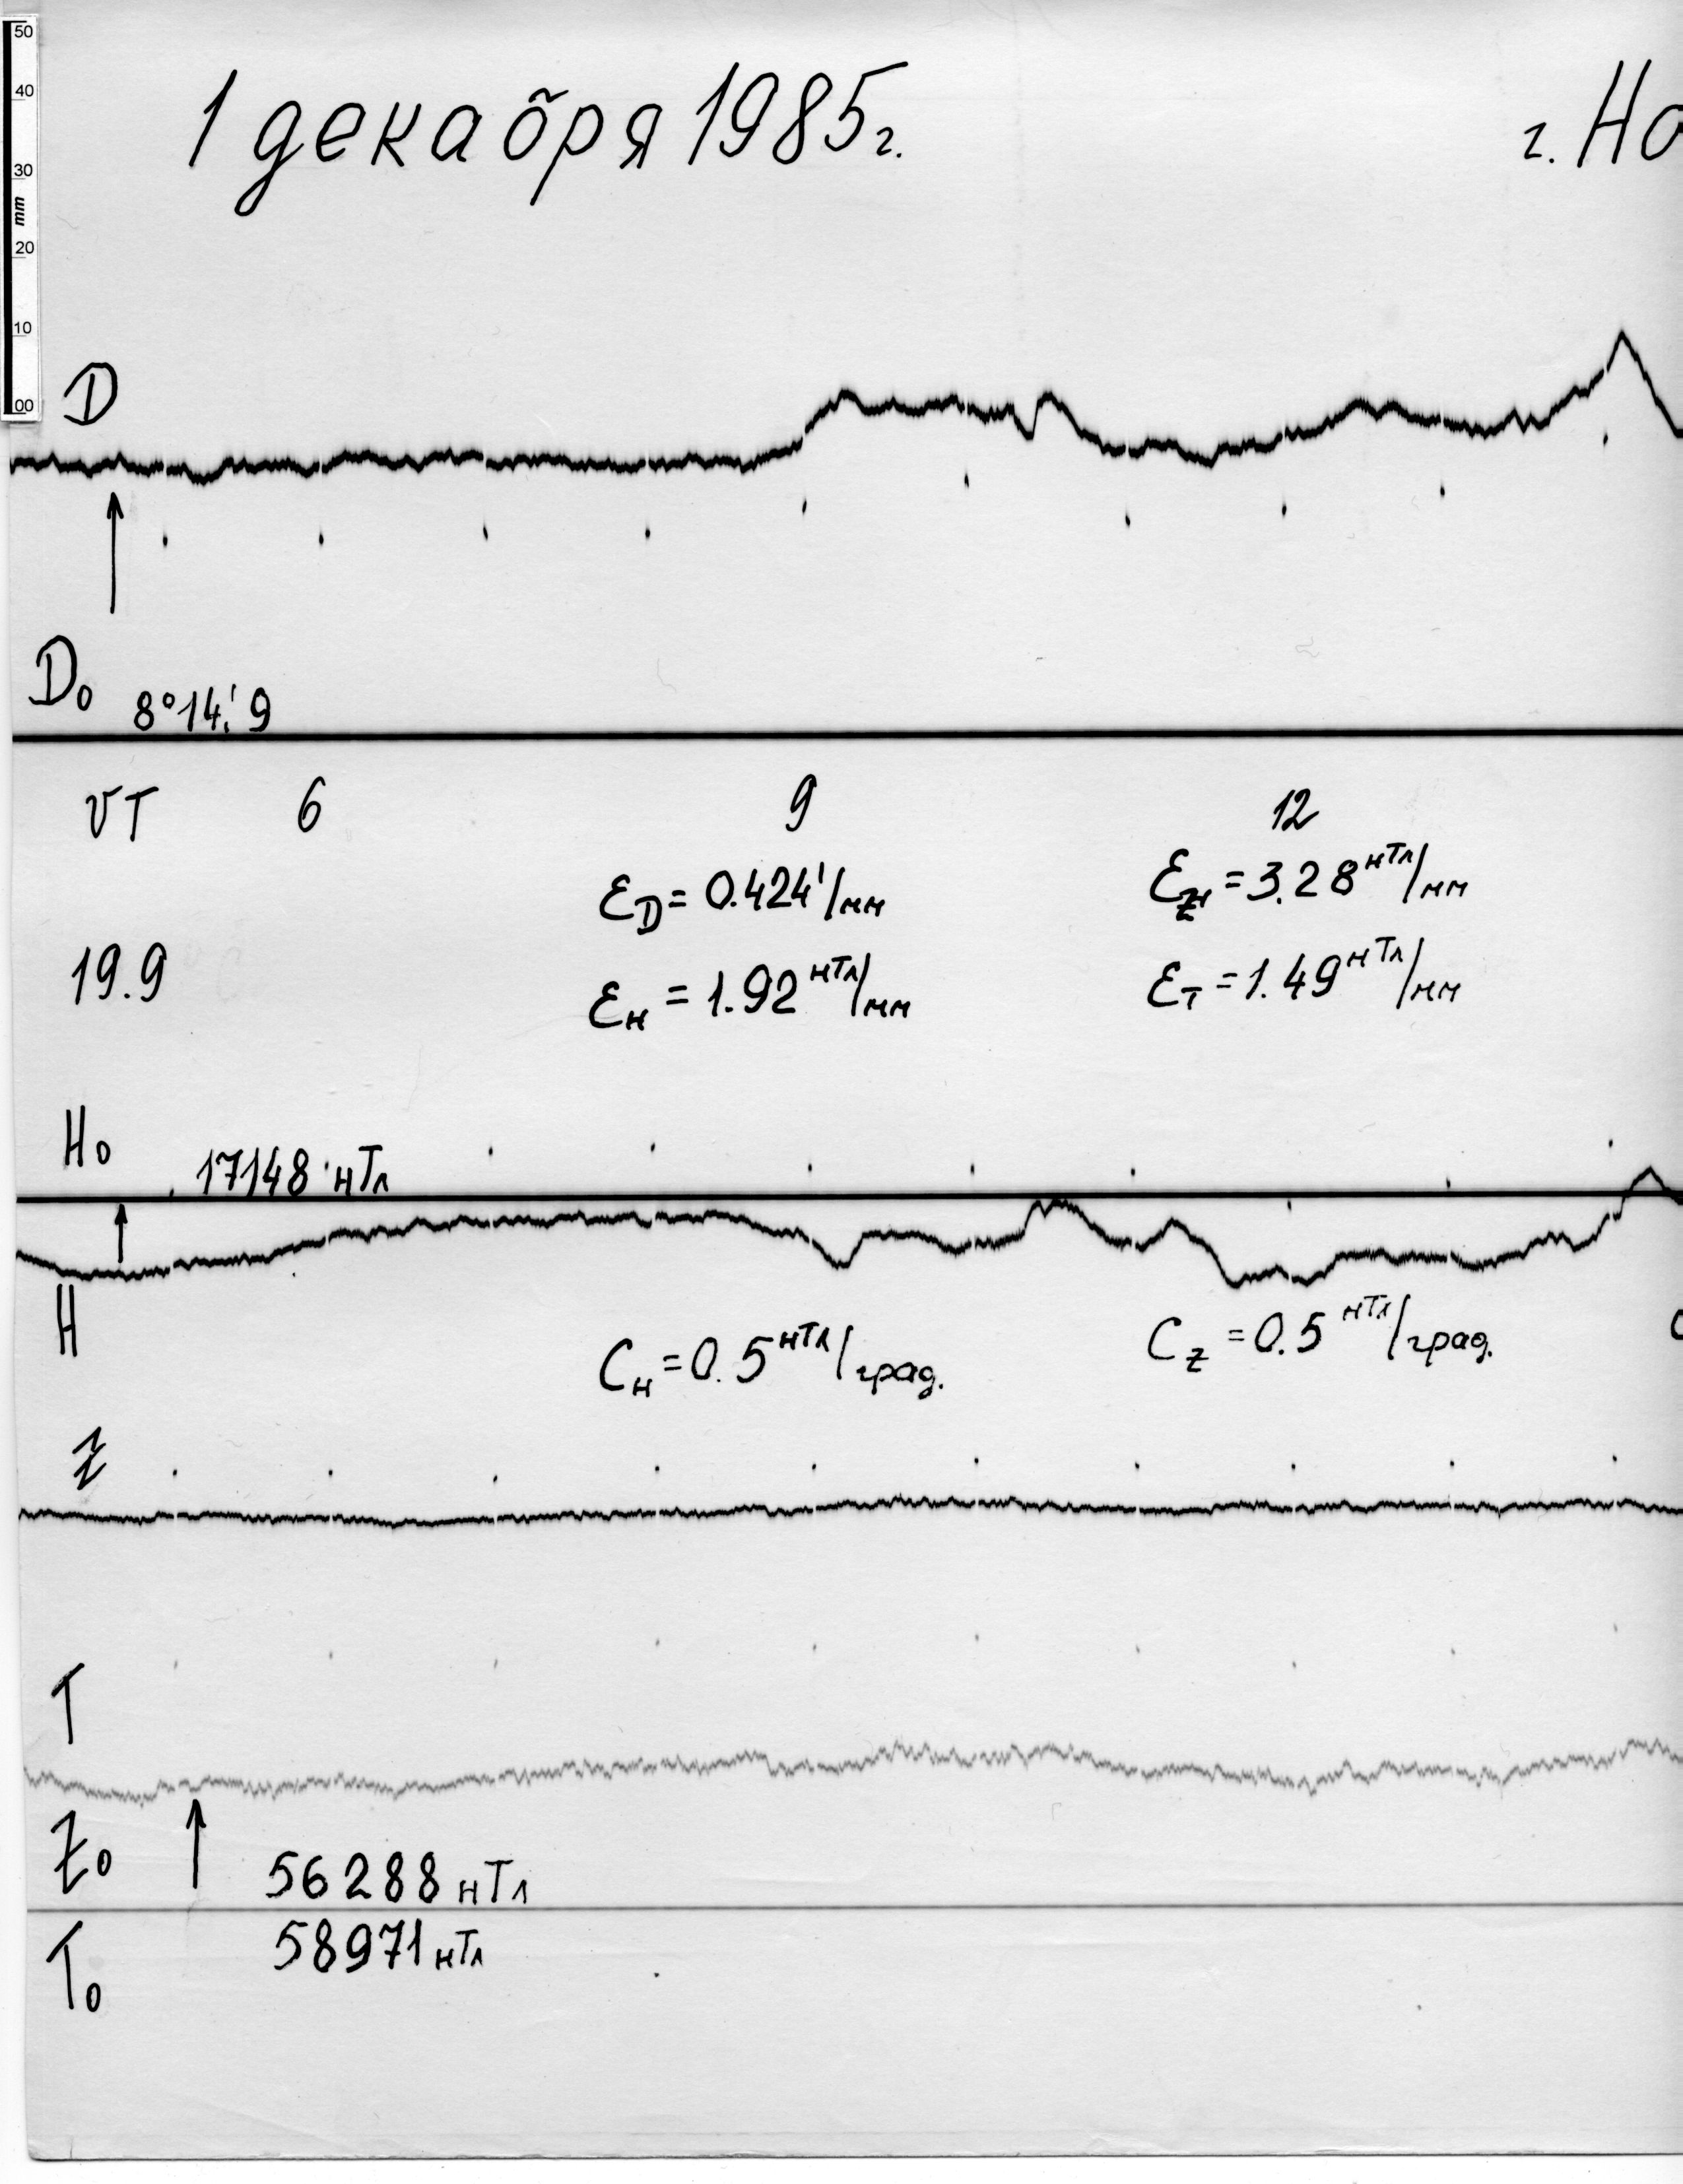 50
40
30
mm
20
10
00
1 декабря 1985г.
г. Но
D
D₀ 8°14.'9
UT 6 9 12
ε_D = 0.424'/мм
ε_Z = 3.28 нТл/мм
19.9
ε_H = 1.92 нТл/мм
ε_T = 1.49 нТл/мм
H₀ 17148 нТл
H
C_H = 0.5 нТл/град.
C_Z = 0.5 нТл/град.
Z
T
Z₀ 56288 нТл
T₀ 58971 нТл